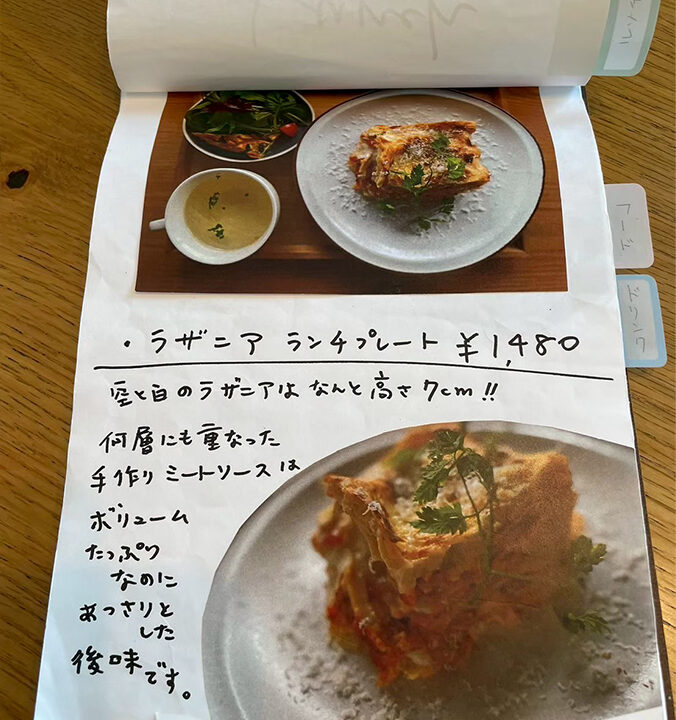 フード
ドリンク
・ラザニア ランチプレート ¥1,480
空と白のラザニアは なんと高さ7cm!!
何層にも重なった
手作りミートソースは
ボリューム
たっぷり
なのに
あっさりと
した
後味です。